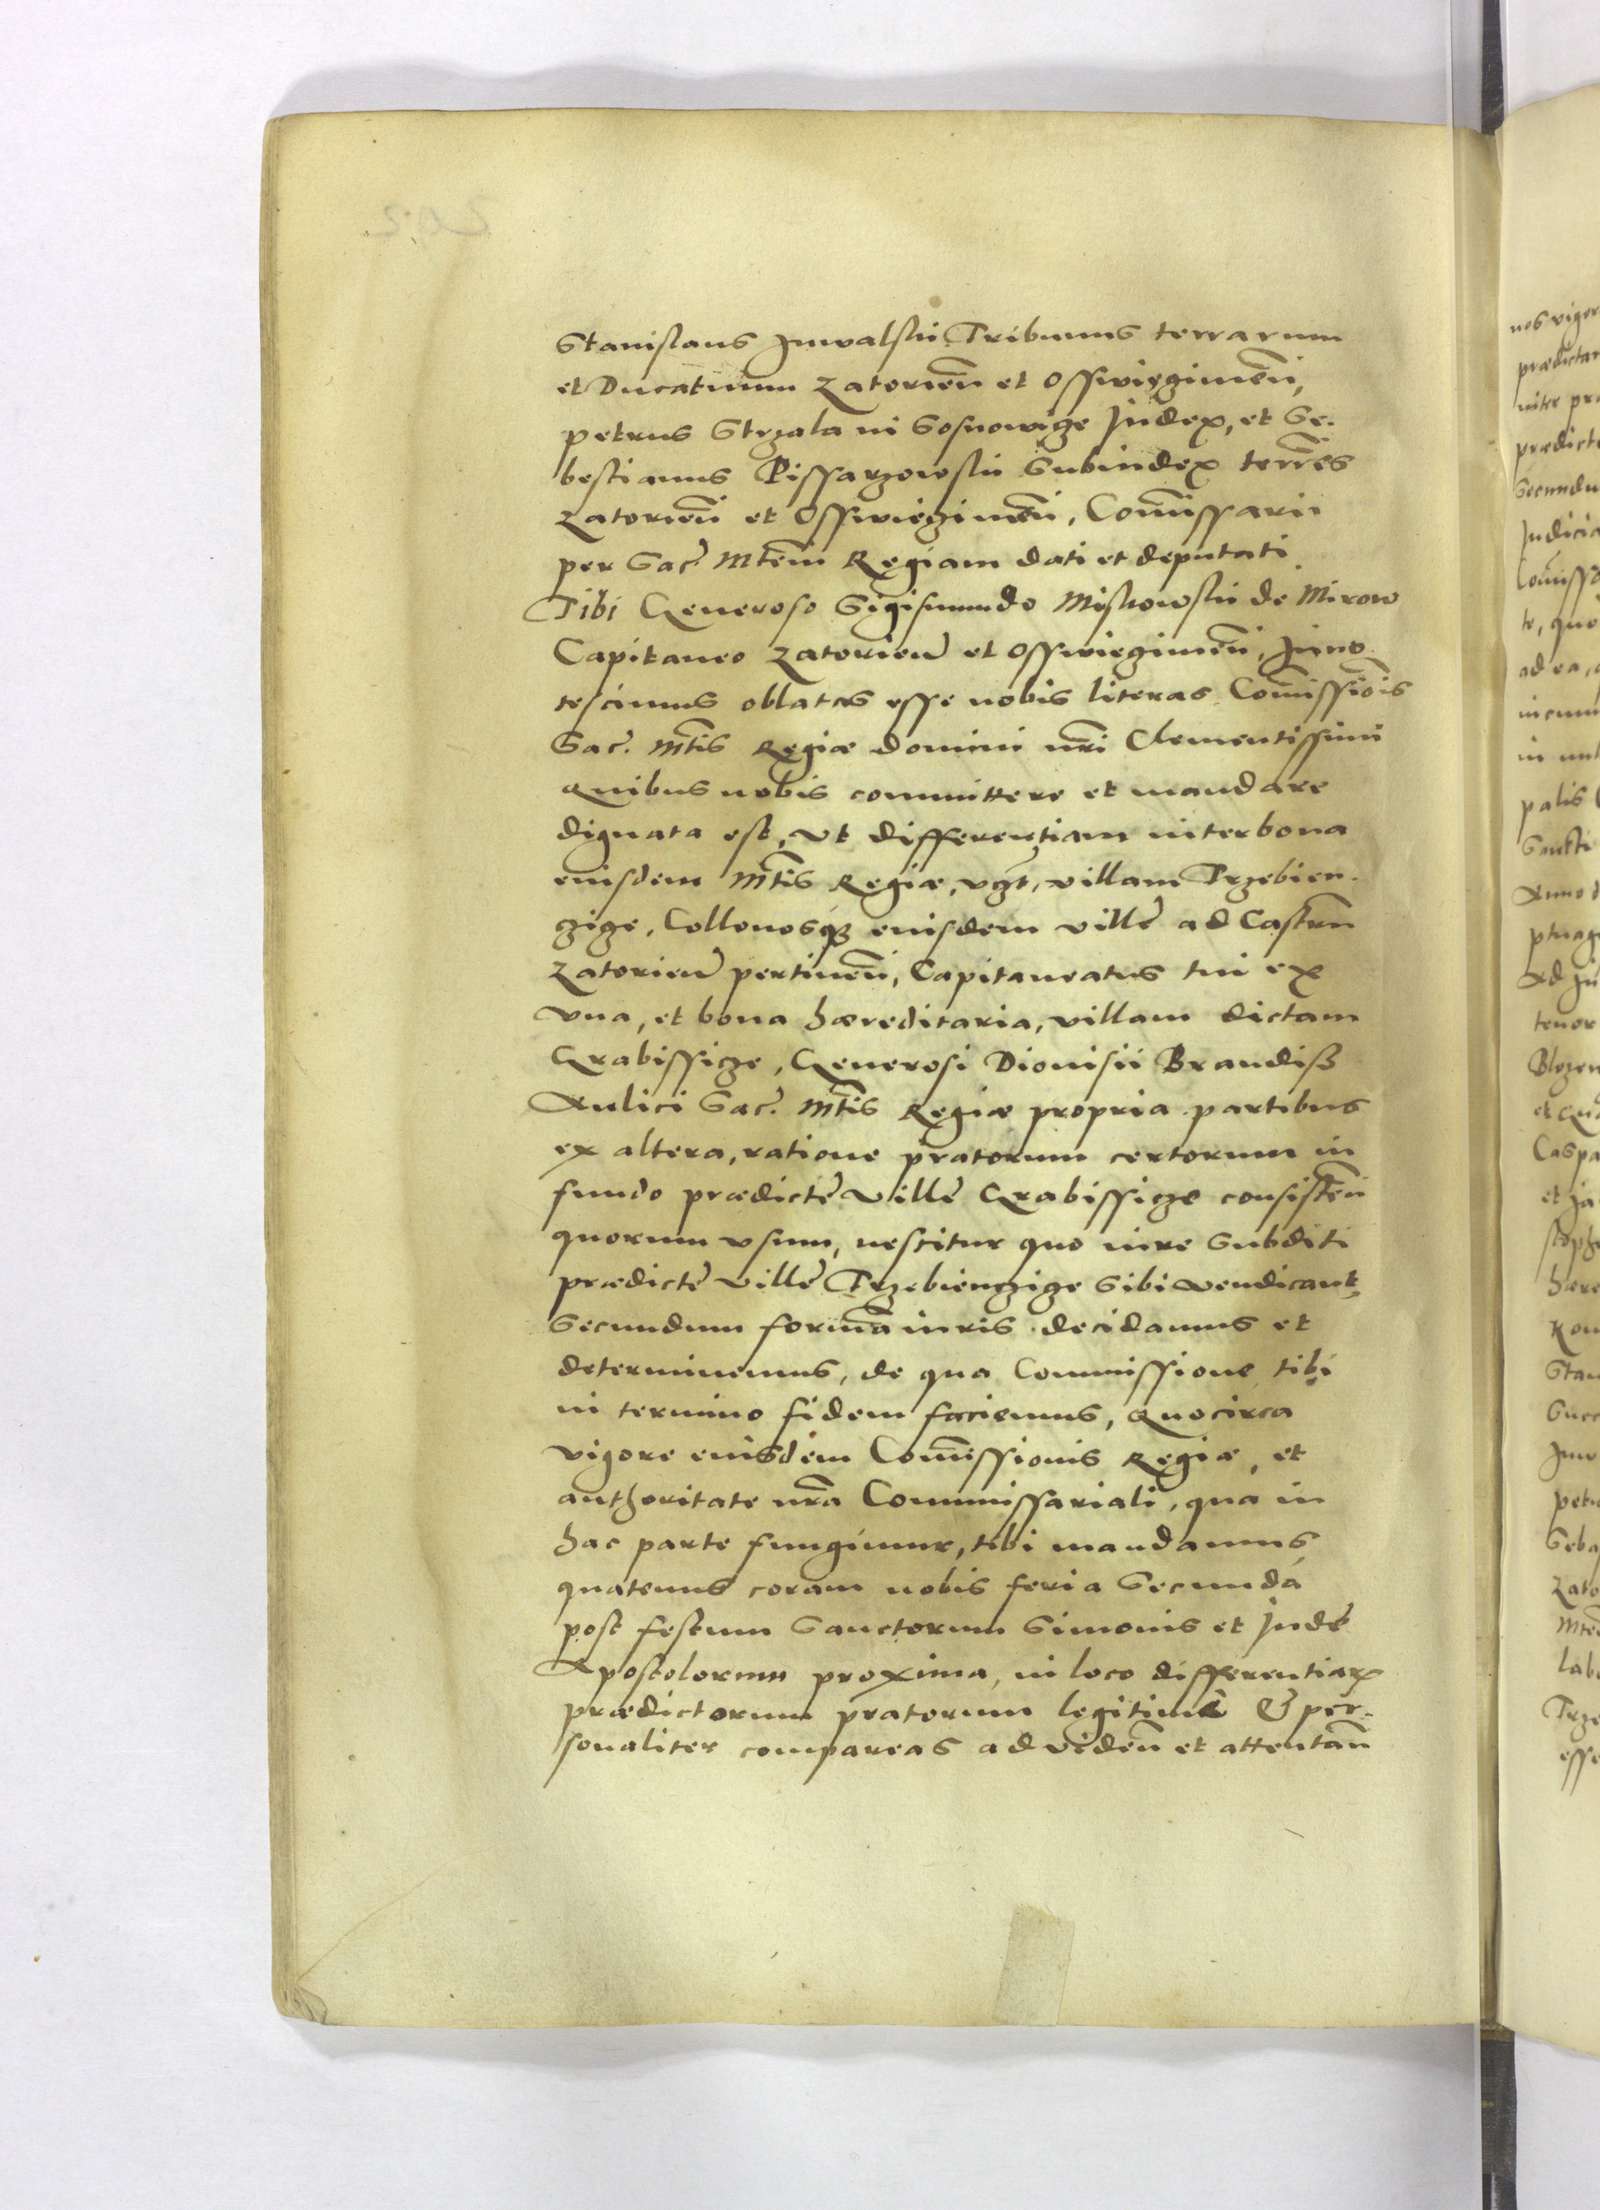 Stanislaus Jnwalski Tribunus terrarum
et Ducatuum Zatorień et Osswięgimeń,
petrus Strzala in Sosnowicze Judex, et Se-
bestianus Pissarzowski Subiudex terrēs
Zatorień et Osswięgimeń, Com̄issarii
per Sac. Mtēm Regiam dati et deputati
Tibi Generoso Sigismundo Miskowski de Mirow
Capitaneo Zatorień et Osswięgimeń, Jnno
tescimus oblatas esse nobis literas Com̄issiōis
Sac. Mtis Regiæ domini nr̄i Clementissimi
quibus nobis committere et mandare
dignata est, vt differentiam inter bona
eiusdem Mtis Regiæ, vgt, villam Trzebien-
czicze, Collonosq̃ eiusdem ville ad Castrū
Zatorień pertineń, Capitaneatus tui ex
vna, et bona hæreditaria, villam dictam
Grabissicze, Generosi Dionisii Brandiß
Aulici Sac. Mtis Regiæ propria partibus
ex altera, ratione pratorum certorum in
fundo prædictę villę Grabissicze consisteń
quorum vsum, nescitur quo iure Subditi
prædictę villę Trzebienczicze sibi vendicant,
Secundum formā iuris decidamus et
determinemus, de qua Commissione tibi
in termino fidem faciemus, Quocirca
vigore eiusdem Com̄issionis Regiæ, et
authoritate nr̄a Commissariali, qua in
hac parte fungimur, tibi mandamus
quatenus coram nobis feria Secunda
post festum Sanctorum Simonis et Judę
Apostolorum proxima, in loco differentiarꝝ
prædictorum pratorum legitimè & per-
sonaliter compareas ad videń et attentań